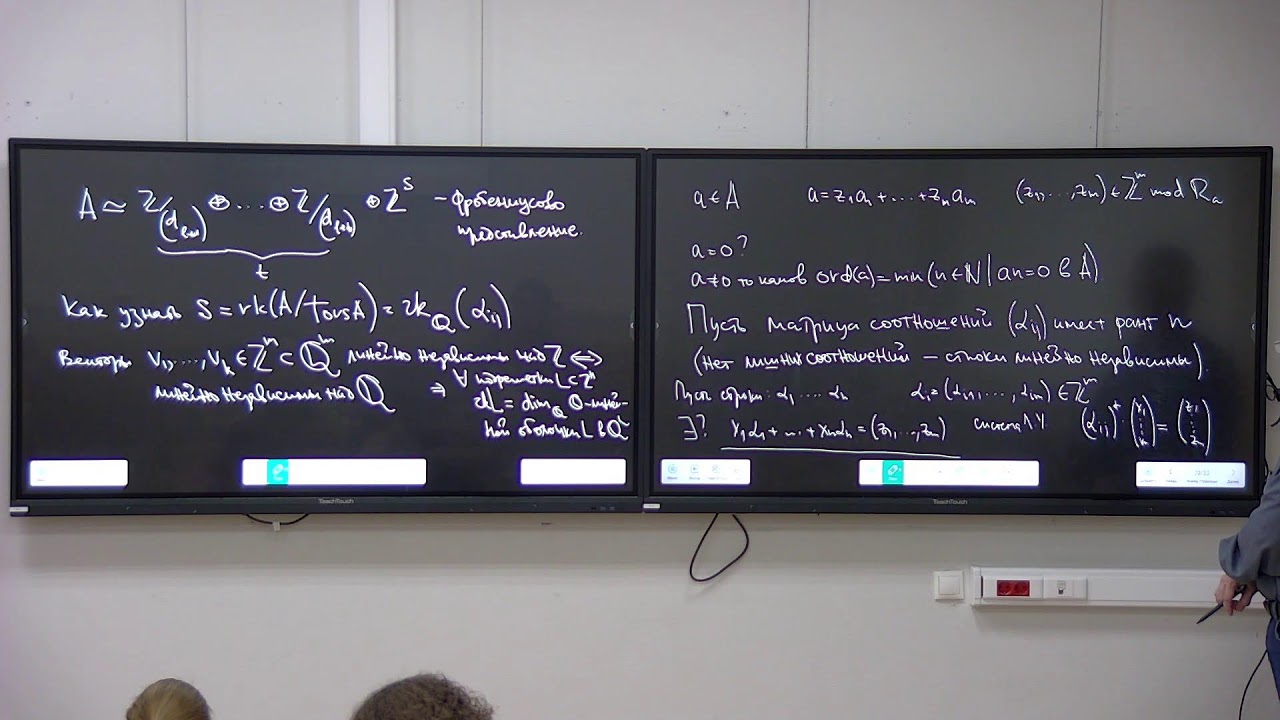 A ≃ ℤ/(d₁₁) ⊕ ... ⊕ ℤ/ ⊕ ℤˢ — Фробениусово
представление.
t
Как узнать S = rk(A/TorsA) = rk_ℚ(α_ij)
Векторы v₁,...,v_k ∈ ℤᵐ ⊂ ℚᵐ линейно независимы над ℤ ⟺
линейно независимы над ℚ ⇒ ∀ подрешётки L ⊂ ℤᵐ
rk L = dim_ℚ ℚ-линей-
ной оболочки L в ℚᵐ
TeachTouch
a ∈ A a = z₁a₁ + ... + z_m a_m (z₁,...,z_m) ∈ ℤᵐ mod R_a
a = 0?
a ≠ 0 то каков ord(a) = min(n ∈ ℕ | an = 0 в A)
Пусть матрица соотношений (α_ij) имеет ранг n
(нет лишних соотношений — строки линейно независимы).
Пусть строки: α₁ ... αₙ α_i = (α_i1, ..., α_im) ∈ ℤᵐ
∃? x₁α₁ + ... + xₙαₙ = (z₁,...,z_m) система ЛУ (α_ij)ᵗ · (x₁ ⋮ xₙ) = (z₁ ⋮ z_m)
TeachTouch